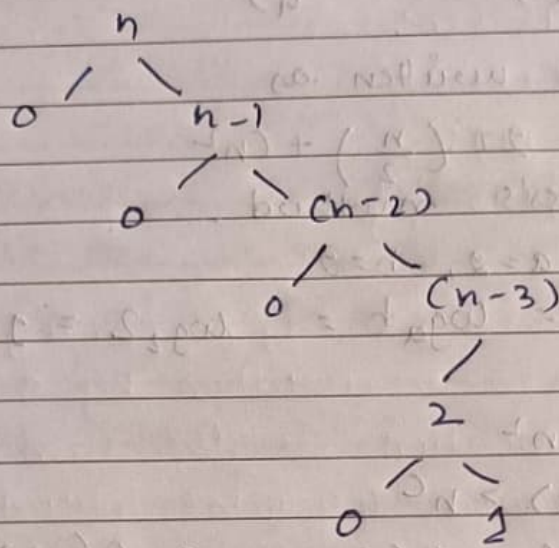 n
0 n-1
0 (n-2)
0 (n-3)
2
0 1